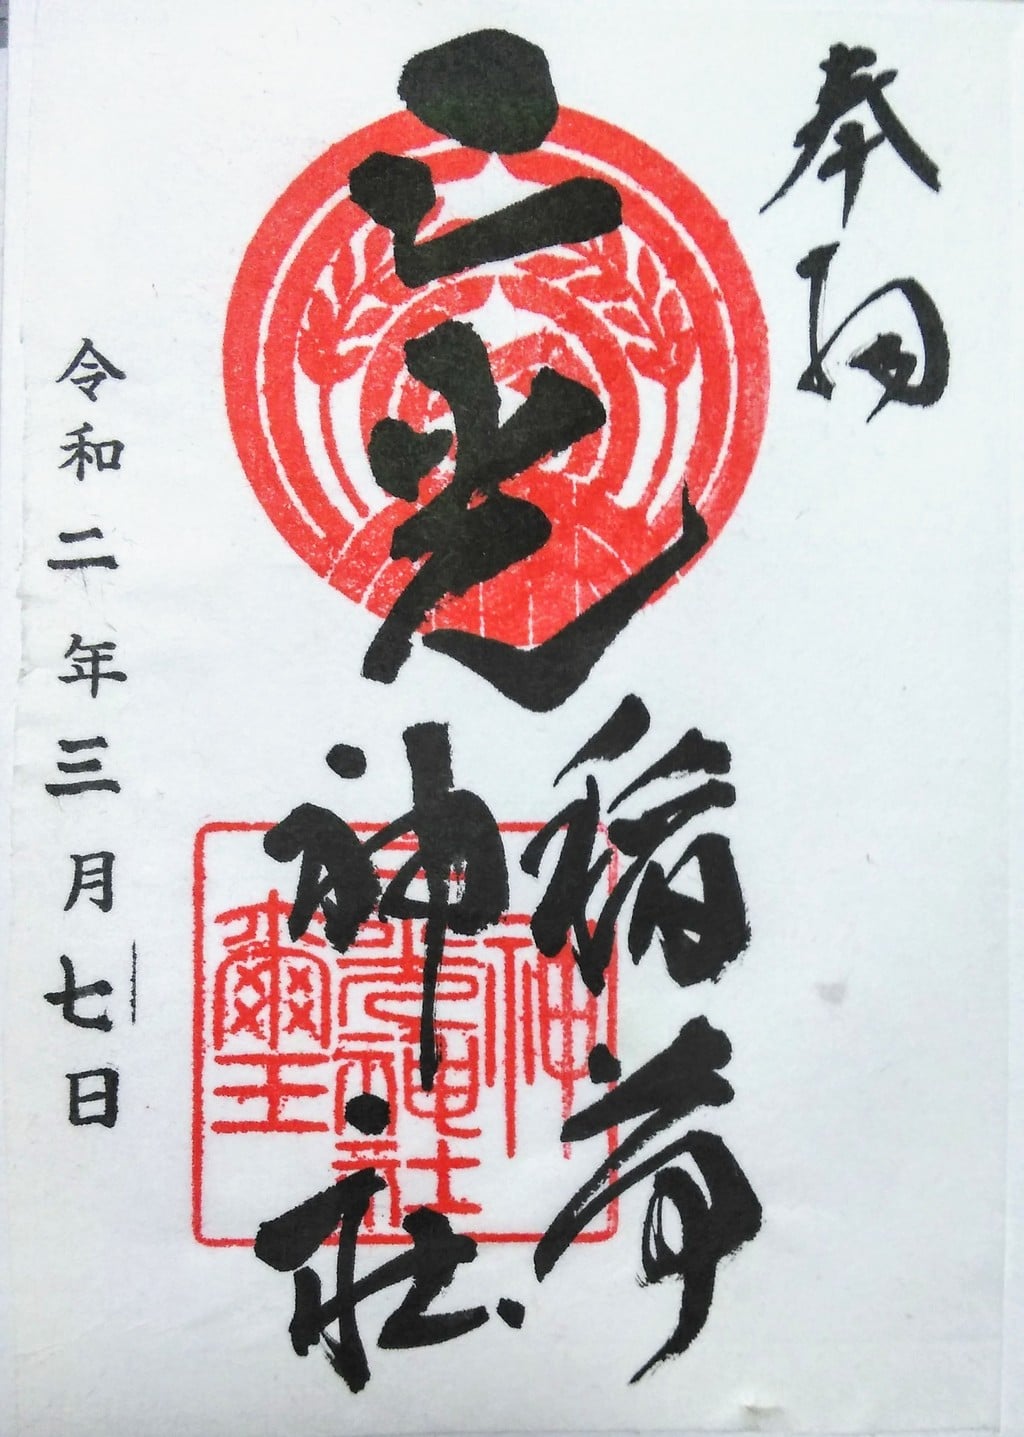 奉納
三光
稲荷
神社
令和二年三月七日